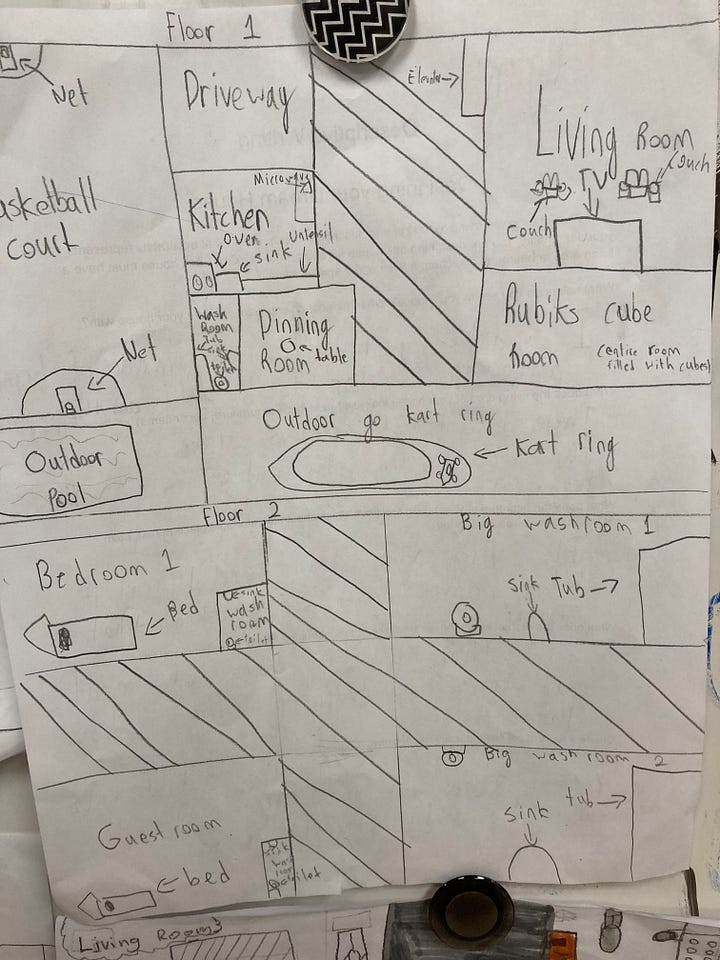 Floor 1
Net
Driveway
Elevator
Living Room
couch
TV
Couch
asketball
court
Kitchen
oven
sink
Wash
Room
Tub
sink
toilet
Dinning
Room
table
Rubiks cube
Room
(entire room
filled with cubes)
Net
Outdoor
Pool
Outdoor go kart ring
Kart ring
Floor 2
Bedroom 1
Bed
sink
wash
room
toilet
Big washroom 1
sink
Tub
Guest room
bed
sink
wash
room
toilet
Big washroom 2
sink
tub
Living Room